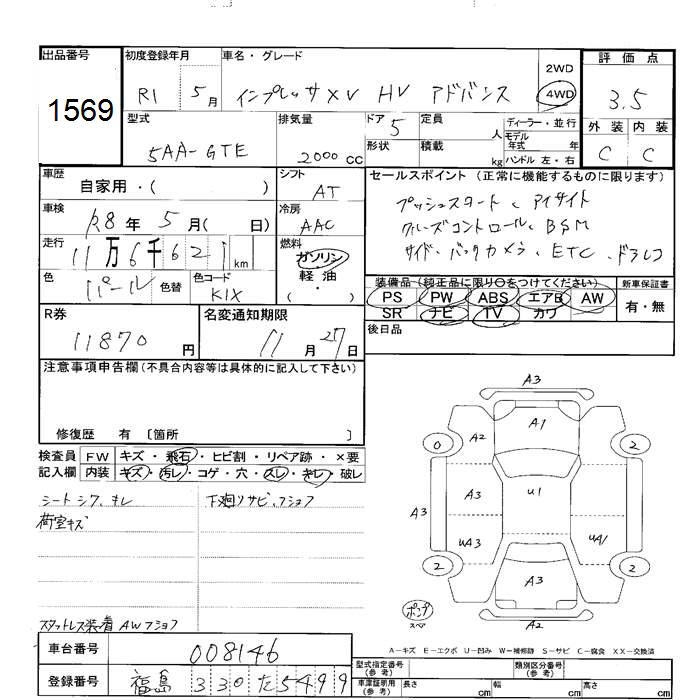 出品番号 初度登録年月 車名・グレード 評価点
1569 R1 5月 インプレッサXV HV アドバンス 2WD 4WD 3.5
型式 排気量 ドア 定員 人 ディーラー・並行 外装 内装
5AA-GTE 2000cc 5 形状 積載 kg モデル年式 年 ハンドル 左・右 C C
車歴 自家用・( ) シフト AT セールスポイント (正常に機能するものに限ります)
車検 R8年 5月( 日) 冷房 AAC プッシュスタート、アイサイト
クルーズコントロール、BSM
走行 11万6千621km 燃料 ガソリン 軽油 ・( ) サイド、バックカメラ、ETC、ドラレコ
色 パール 色替 色コード K1X 装備品 (純正品に限り○をつけてください) 新車保証書
PS PW ABS エアB AW 有・無
SR ナビ TV カワ
R券 11870円 名変通知期限 11月27日 後日品
注意事項申告欄(不具合内容等は具体的に記入して下さい)
修復歴 有 〔箇所 〕
検査員 FW キズ・飛石・ヒビ割・リペア跡・×要
記入欄 内装 キズ・汚レ・コゲ・穴・スレ・キレ・破レ
シートシワ、キレ 下廻リサビ、フショク
荷室キズ
スタットレス装着 AWフショク
A3
A1
0 A2 2
A3 A3 U1
UA3 UA1
2 A3 2
A2
パンク スペア
A-キズ E-エクボ U-凹み W-補修跡 S-サビ C-腐食 XX-交換済
車台番号 008146
型式指定番号(参考) 類別区分番号(参考)
登録番号 福島 330 た 5499
車庫証明用(参考) 長さ cm 幅 cm 高さ cm